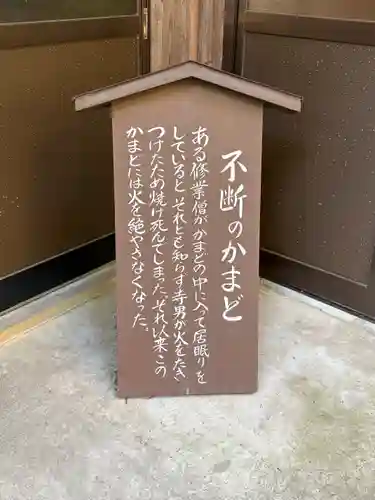 不断のかまど
ある修業僧がかまどの中に入って居眠りを
していると、それとも知らず寺男が火をたき
つけたため焼け死んでしまった。それ以来この
かまどには火を絶やさなくなった。